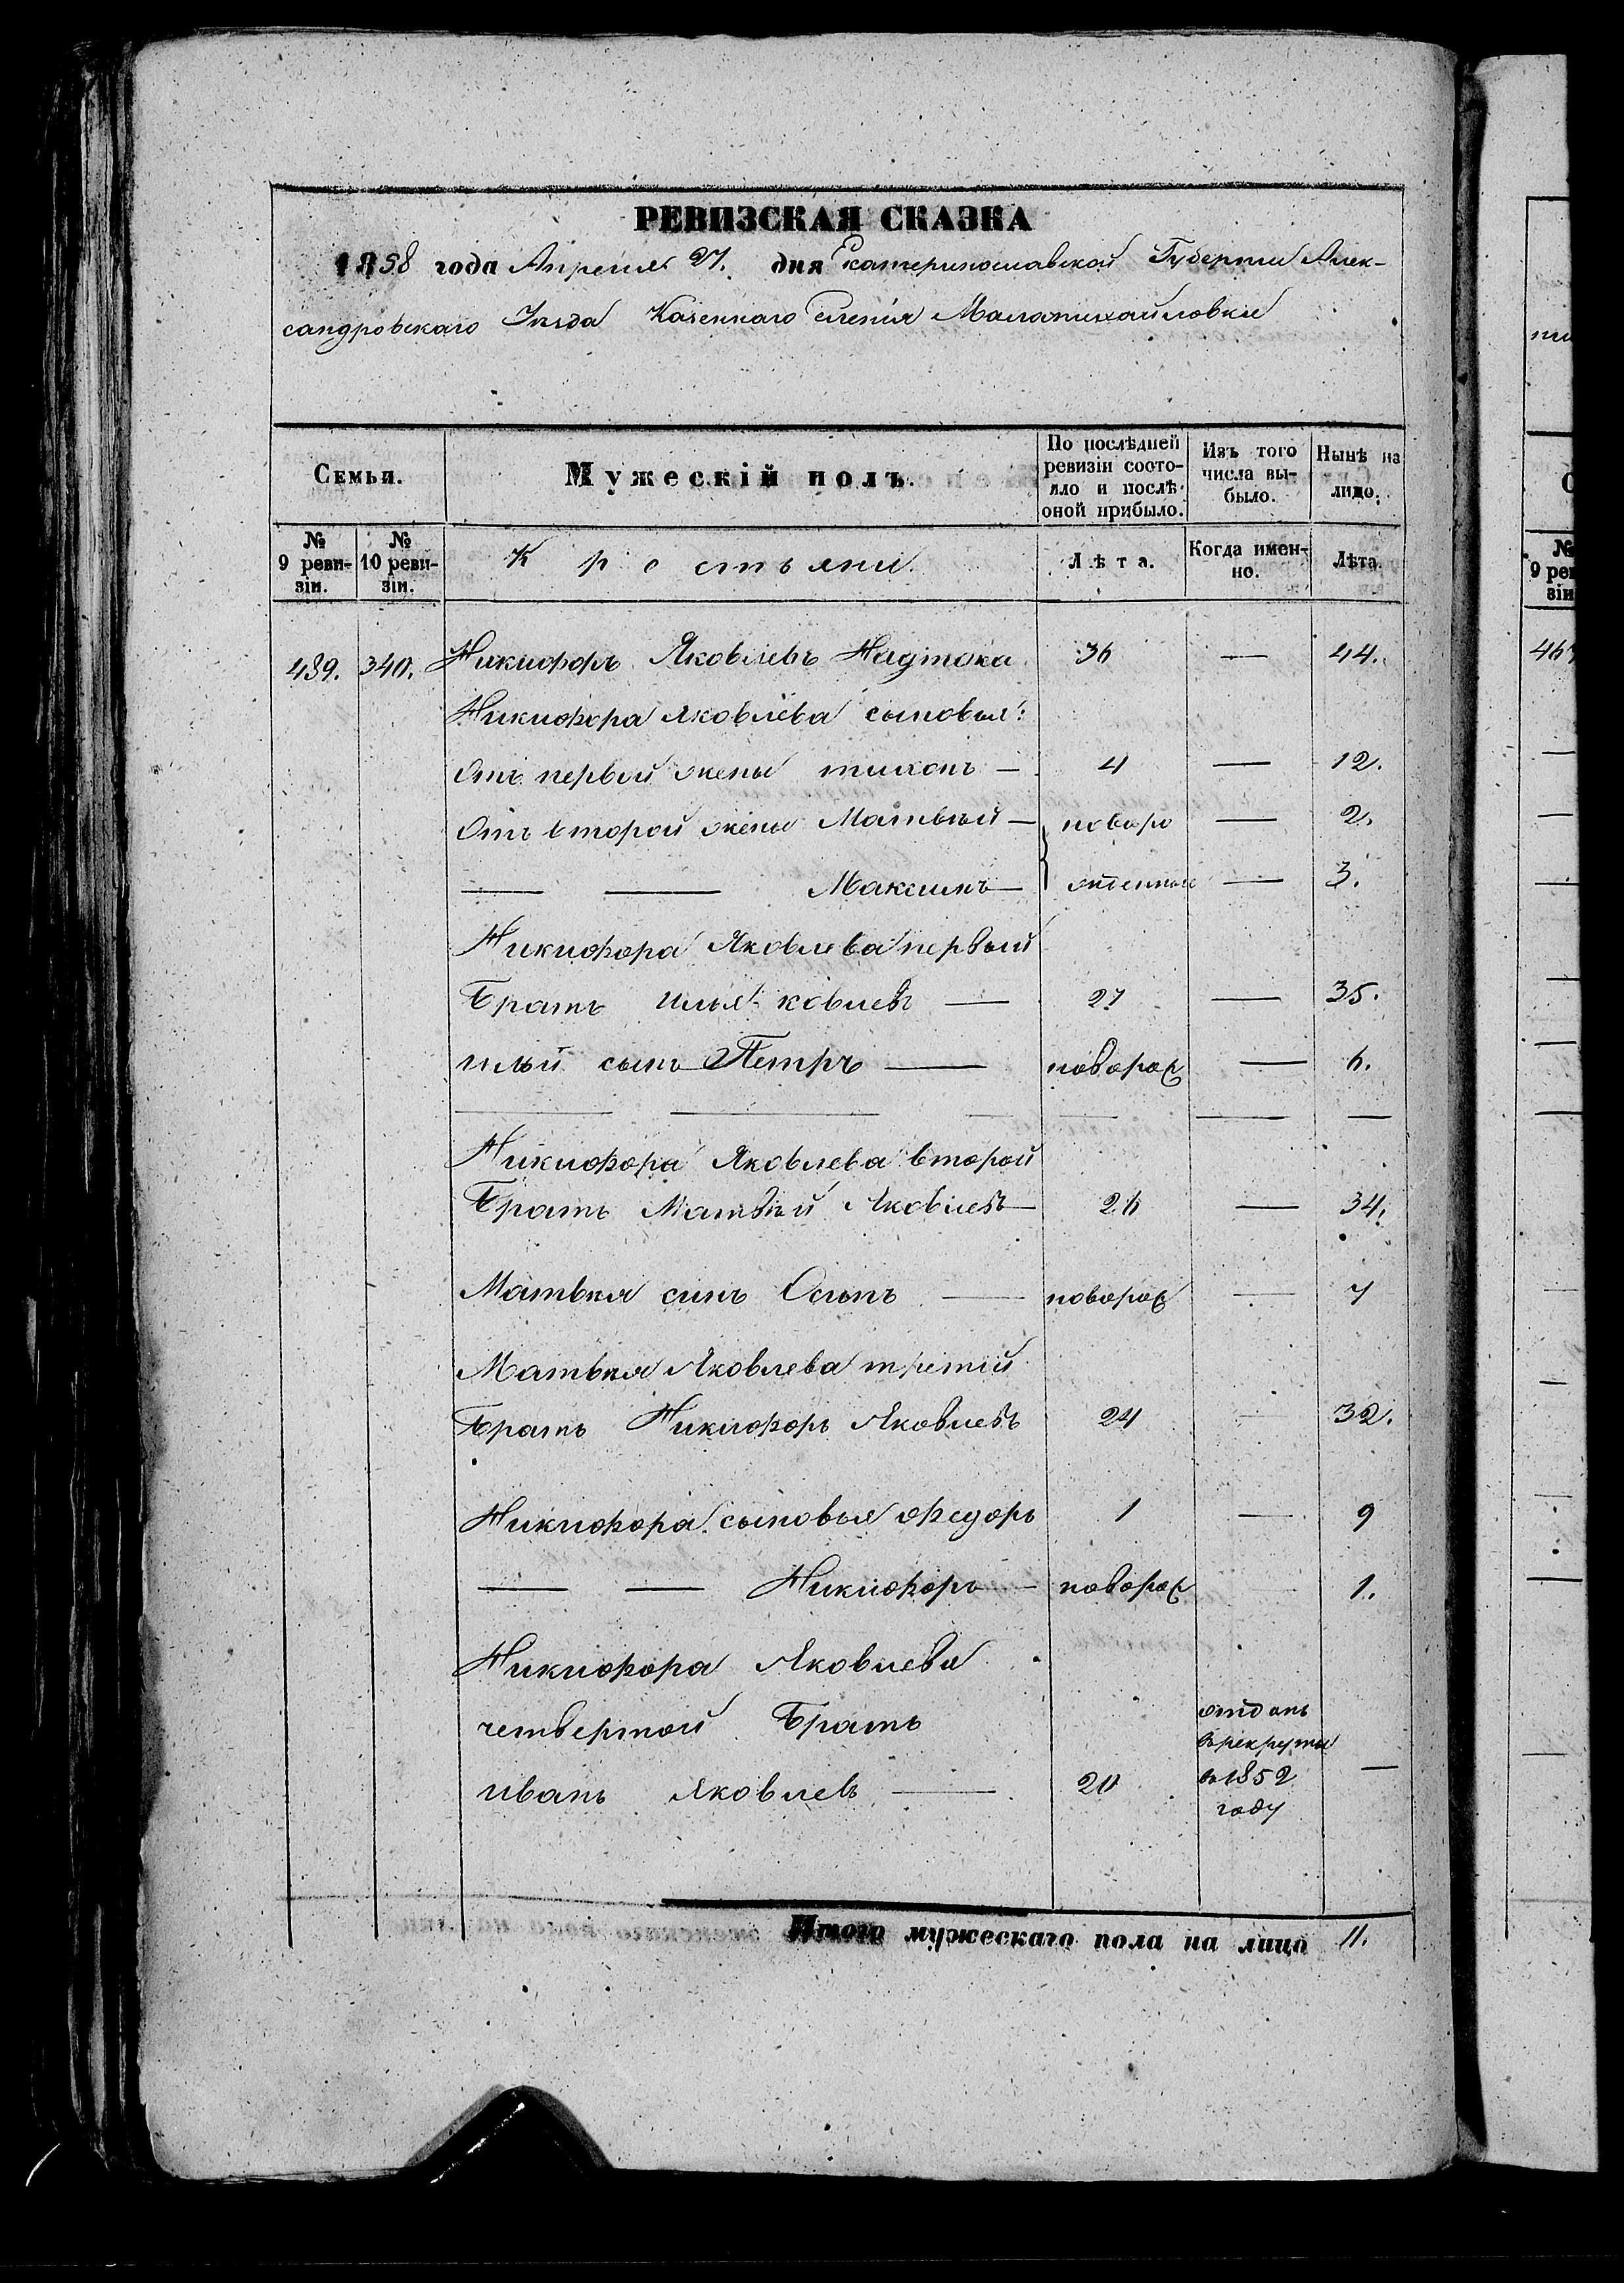 РЕВИЗСКАЯ СКАЗКА
1858 года Апреля 27. дня Екатеринославской Губернии Алек-
сандровскаго Уѣзда Казеннаго Селенія Маламихайловки
Семьи. Мужескій полъ. По послѣдней ревизіи состо-яло и послѣ оной прибыло. Изъ того числа вы-было. Нынѣ на лицо.
№ 9 реви-зіи. № 10 реви-зіи. Крестьяни. Лѣта. Когда имен-но. Лѣта.
489. 340. Никифоръ Яковлевъ Надтока 36 — 44.
Никифора Яковлева сыновья:
Отъ первой жены тихонъ — 4 — 12.
Отъ второй жены Матвѣй — новоро — 2.
— — Максимъ — жденные — 3.
Никифора Яковлева первый
Братъ илья ковлевъ — 27 — 35.
ильи сынъ Петръ — новорож — 6.
— — — — — —
Никифора Яковлева второй
Братъ Матвѣй Яковлевъ — 26 — 34.
Матвѣя синъ Осипъ — новорож — 7
Матвѣя Яковлева третий
Братъ Никифоръ Яковлевъ 24 — 32.
Никифора сыновья Федоръ 1 — 9
— — Никифоръ — новорож 1.
Никифора Яковлева
четвертой Братъ
иванъ Яковлевъ — 20 отданъ врекруты в 1852 году —
Итого мужескаго пола на лицо 11.
№
9 рев
зіи